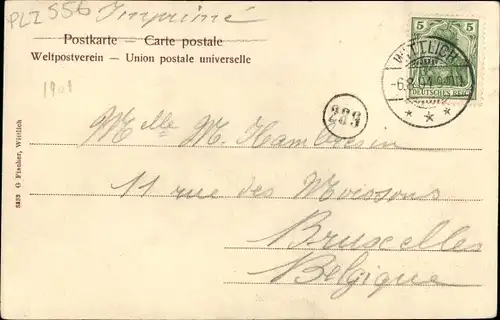 PLZ 556 Imprimé
Postkarte — Carte postale
Weltpostverein — Union postale universelle
5 5
DEUTSCHES REICH
WITTLICH
* * *
1901
233
Melle M.
11 rue des Moissons
Bruxelles
Belgique
5233 G Fischer, Wittlich